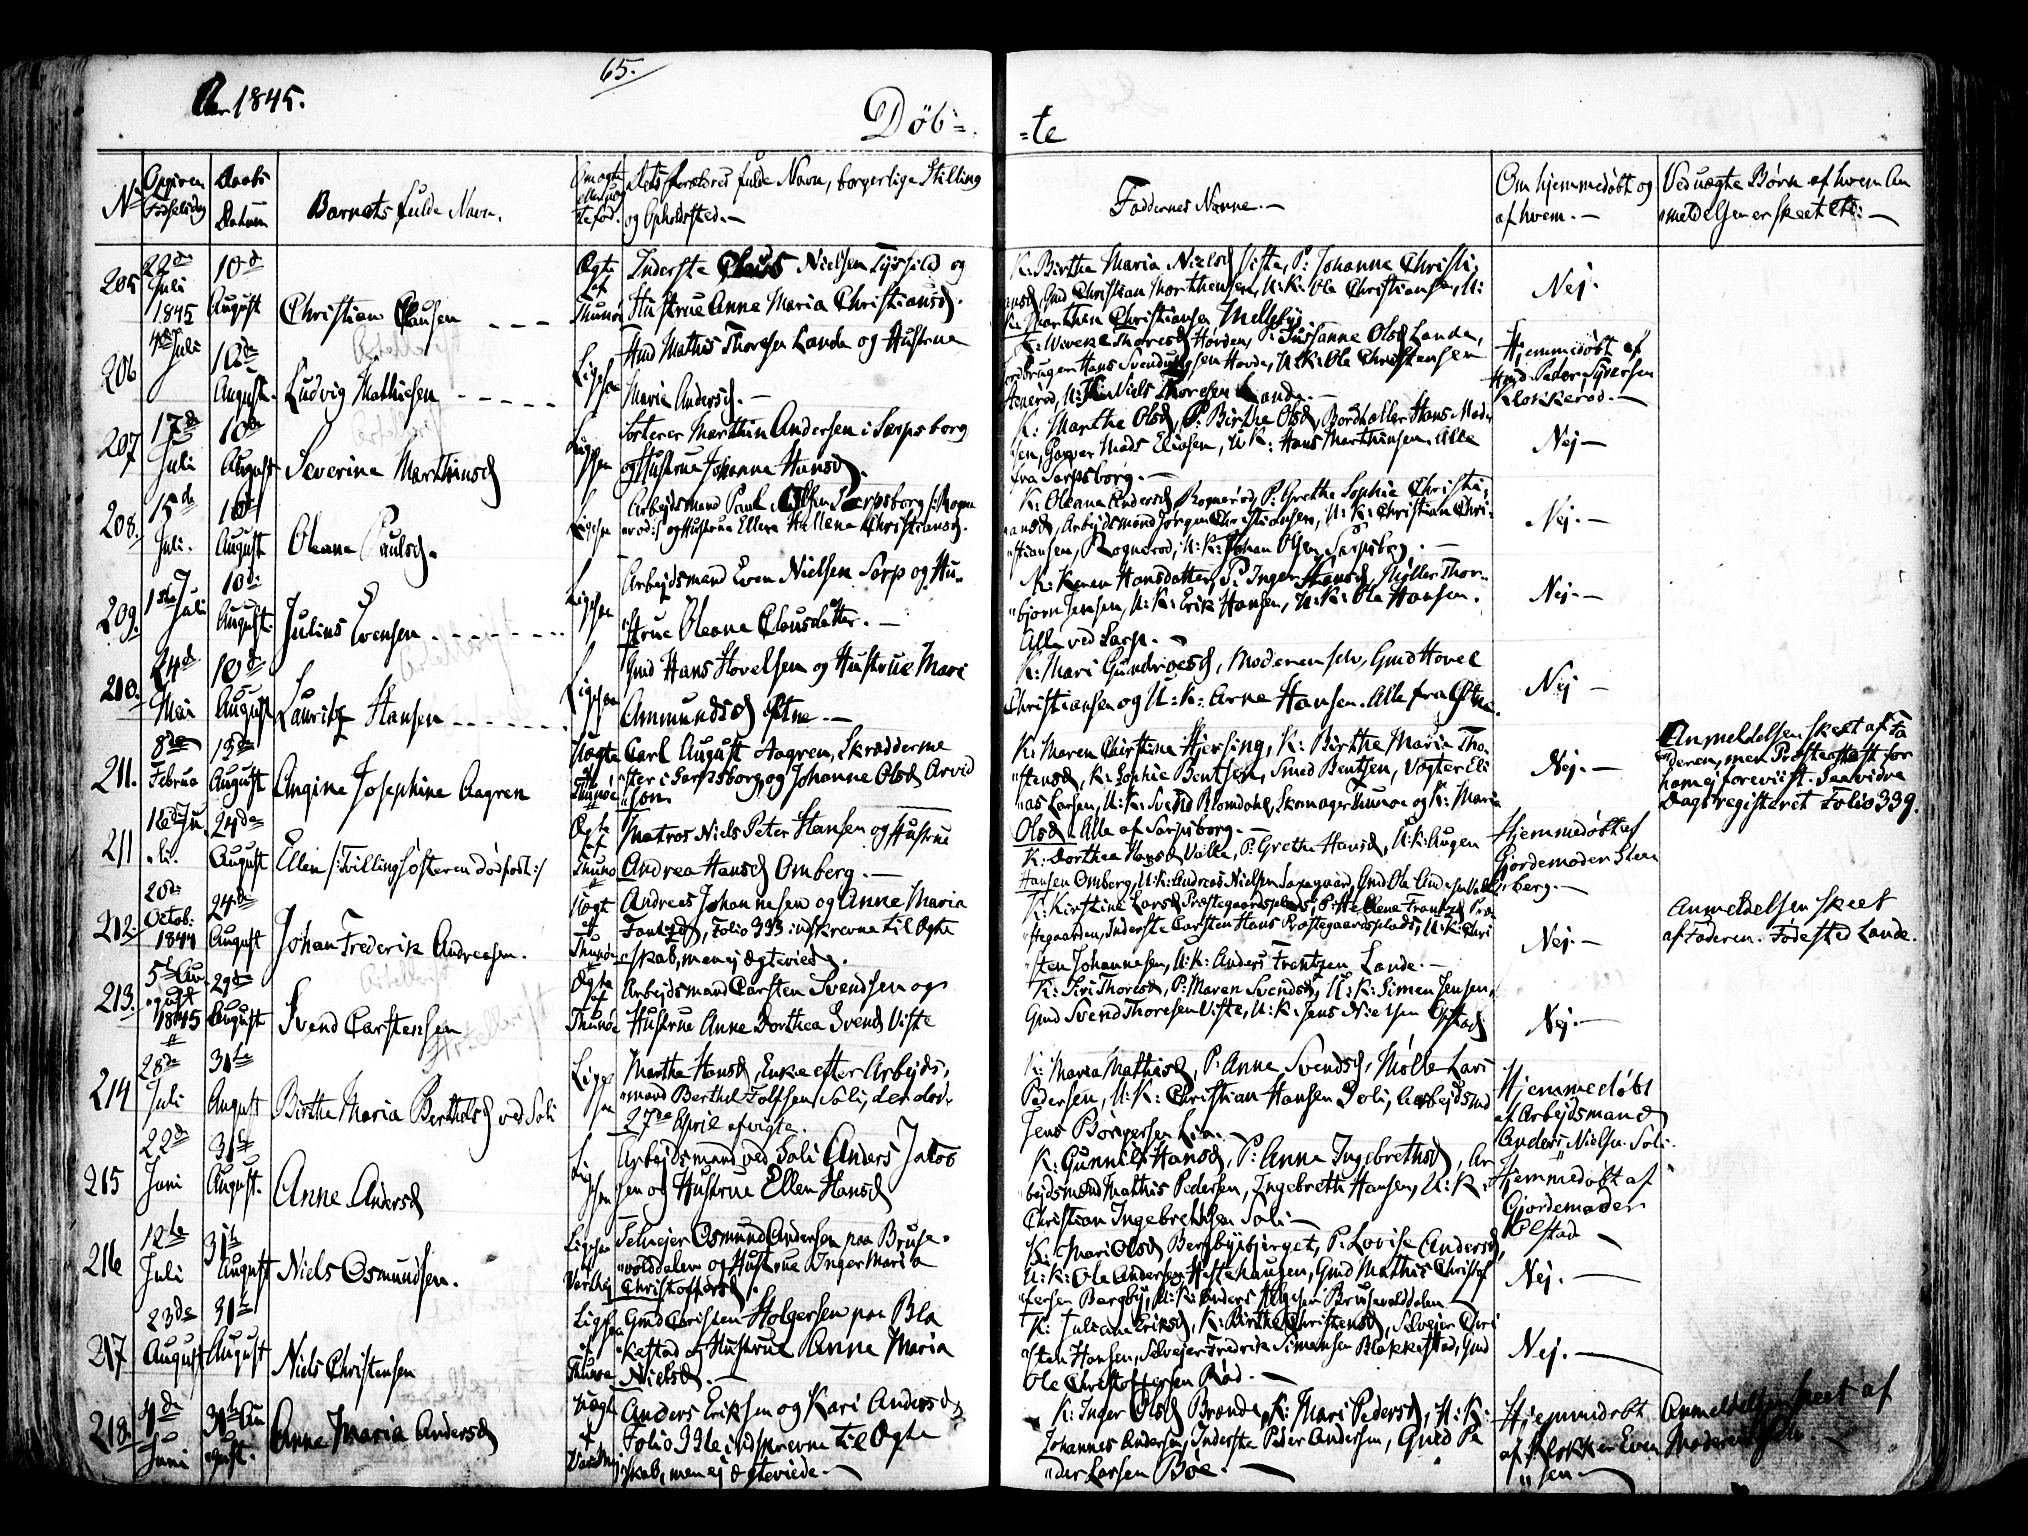 65.
Aar 1845.
Döb=
=te
No
Opgiven Fødselsdag
Daabs Datum
Barnets fulde Navn.
Om ægte eller uægte fød.
Dets Forældres fulde Navn, borgerlige Stilling
og Opholdsted.—
Faddernes Navne.—
Om hjemmedøbt og
af hvem.—
Ved uægte Børn af hvem An
meldelsen er skeet etc:—
205
22de Juli 1845
10de August
Christian Clausen
Ægte
Inderste Claus Nielsen og
Hustrue Anne Maria Christiansd.
K: Birthe Maria Nielsd Viste, P: Johanne Christi-
ansd, Gmd Christian Marthensen, U: K: Ole Christiansen, U:
K: Marthen Christiansen
Nej.
206
Juli
10de August.
Ludvig Mathiesen
Ligesaa
Gmd Mathis Thoresen Lande og Hustrue
Marie Andersd.—
Thoresd Hovden, P: Susanne Olsd Lande,
Hans Svendungsen Hovde, U: K: Ole Christensen
U: K: Niels Thoresen Lande.—
Hjemmedøbt af
Gmd Peder Syversen
Klokkerød.—
207
17de Juli
10de August
Severine Marthinsd
Ligesaa
Sorterer Marthin Andersen i Sarpsborg
og Hustrue Johanne Hansd.
K: Marthe Olsd, P: Birthe Olsd, Bordholler Hans Mad-
sen, Mads Eliesen, U K: Hans Marthinsen, Alle
fra Sarpsborg.—
Nej—
208.
15de Juli.
10de August
Oleane Paulsd.
Ligesaa
Arbejdsmand Paul Olsen Sarpsborg /: Rogne
rød :/ og Hustrue Ellen Hellene Christiansd.
K: Oleana Andersd Rognerød, P: Grethe Sophie Christi-
ansd, Arbejdsmand Jørgen Christiansen, U: K: Christian Chri-
stiansen, Rognerød, U: K: Johan Olsen Sarpsborg.—
Nej.—
209.
Juli
10de August.
Julius Evensen
Ligesaa
Arbejdsmand Even Nielsen Sarp og Hu-
strue Oleane Clausdatter.—
K: Karen Hansdatter, P: Inger Hansd, Møller Thor-
bjørn Jensen, U: K: Erik Hansen, U: K: Ole Hansen.
Alle ved Sarp.—
Nej.—
210.
24de Mai
10de August
Lauritz Hansen
Ligesaa
Gmd Hans Hovelsen og Hustrue Mari
Ammundsd Østne.—
K: Mari Gundroesd, Moderen selv, Gmd Hovel
Christiansen og U: K: Arne Hansen. Alle fra Østne.
Nej—
211.
8de Februa
13de August
Angine Josephine Aagren
Uægte
Carl August Aagren, Skrædderme
ster i Sarpsborg, og Johanne Olsd Arvid
son.
K: Maren Chirstine Hjersing, K: Birthe Marie Tho-
stensd, K: Sophie Bentsen, Smed Bentsen, Vogter Eli
as Larsen, U: K: Svend Blomdahl, Skomager Thunoe og K: Maria
Olsd. Alle af Sarpsborg.—
Nej.—
Anmeldelsen skeet af Fa
deren, men Præsteattest for
ham ej foreviist. Saavidre
Dagsregisteret Folio 339.
211
Juli.
24de August
Ellen /: Tvillingsøsteren dødfødt :/
Ægte
Matros Niels Peter Hansen og Hustrue
Andrea Hansd Omberg.—
K: Dorthea Hansd Valle, P: Grethe Hansd, U: K: Augen
Hansen Omberg, U: K: Andreas Nielsen Gmd Ole Andersen
Hjemmedøbt af
Gjordemoder Sten
berg.—
212.
20de Octob: 1844
24de August
Johan Frederik Andreasen.
Uægte
Andreas Johannesen og Anne Maria
Frantzd, Folio 333 indskrevne til Ægte
skab, men ej ægteviede.
K: Kirstine Larsd Præstegaardsplads, P: Helene Frantzd Præ
stegaarden, Inderste Carsten Hans Præstegaardsplads, U: K: Chri
sten Johannesen, U: K: Anders Frantzen Lande.—
Nej.—
Anmeldelsen skeet
af Faderen. Fødested Lande.
213.
5te August 1845
29de August
Svend Carstensen
Ægte
Arbejdsmand Carsten Svendsen og
Hustrue Anne Dorthea Svendsd Viste
K: Siri Thoresd, P: Maren Svendsd, U: K: Simen Jensen,
Gmd Svend Thoresen Viste, U: K: Jens Nielsen Opstad
Nej.—
214
28de Juli
31te August
Birthe Maria Berthelsd ved Soli
Ligesaa
Martha Hansd, Enke efter Arbejds-
mand Berthel Soli, der døde
27de April afvigte.
K: Maria Mathisd, P: Anne Svendsd, Mølle Lars
Pedersen, U: K: Christian Hansen Soli, Arbejdsmd
Jens Børgersen Lia.—
Hjemmedøbt
af Arbejdsmand
Anders Nielsen Soli.
215
22de Juni
31te August.
Anne Andersd
Ligesaa
Arbejdsmand ved Soli Anders Jakob
sen og Hustrue Ellen Hansd
K: Gunnild Hansd, P: Anna Ingebrethsd, Ar
bejdsmand Mathis Pedersen, Ingebreth Hansen, U: K:
Christian Ingebrethsen Soli—
Hjemmedøbt af
Gjordemoder
Kolstad
216
12te Juli
31te August
Niels Osmundsen.
Ligesaa
Selvejer Osmund Andersen paa Bruse-
volddalen og Hustrue Inger Maria
Christoffersd.
K: Mari Olsd Bergbyebjerget, P: Lovise Andersd,
U: K: Ole Andersen Hestehaugen, Gmd Mathis Christof
fersen Bergby, U: K: Anders Brusevolddalen
Nej.—
217
23de August
31te August
Niels Christensen
Ligesaa
Gmd Christen Holgersen paa Bla
kestad og Hustrue Anne Maria
Nielsd.—
K: Juliane Eriksd, K: Birthe Christensd, Selvejer Chri
sten Hansen, Selvejer Fredrik Simensen Blakkestad, Gmd
Ole Christoffersen Rød.—
Nej.—
218.
4de Juni
31te August.
Anne Maria Andersd
Uægte
Anders Eriksen og Kari Andersd
Folio 331 indskrevne til Ægte
skab, men ej ægteviede.—
K: Inger Olsd Brende, K: Mari Pedersd, U: K:
Johannes Andersen, Inderste Peder Andersen, Gmd Pe
der Larsen Bøe.—
Hjemmedøbt
af Klokker Even
sen
Anmeldelsen skeet af
Moderen selv.—